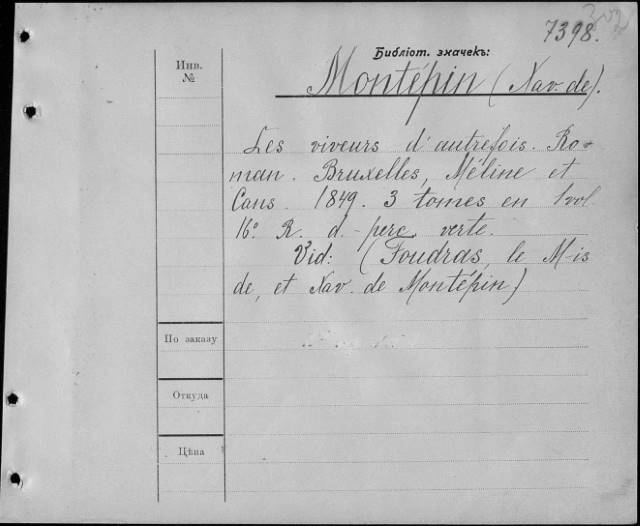 7398.
Библіот. значекъ:
Инв.
№
Montépin (Xav. de).
Les viveurs d'autrefois. Ro-
man. Bruxelles, Méline et
Cans. 1849. 3 tomes en 1 vol
16° R. d.-perc verte.
Vid: (Foudras, le M-is
de, et Xav. de Montépin)
По заказу
Откуда
Цѣна